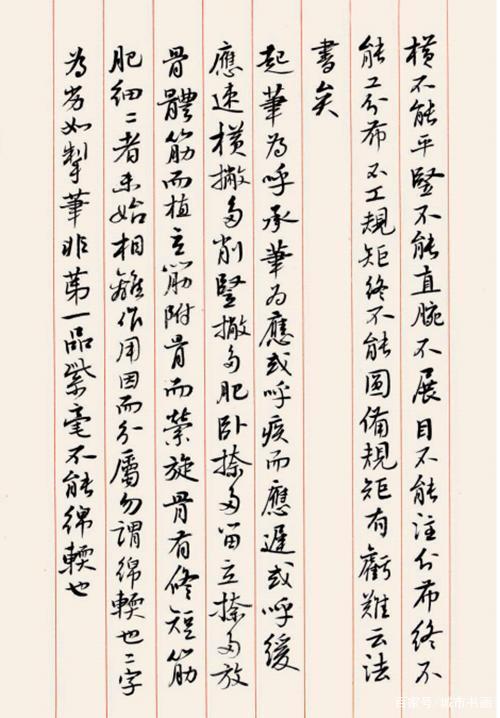 橫不能平豎不能直腕不展目不能注分布終不
能工分布不工規矩終不能圓備規矩有虧難云法
書矣
起筆為呼承筆為應或呼疾而應遲或呼緩
應速橫撇多削豎撇多肥卧捺多留立捺多放
骨體筋而植立筋附骨而縈旋骨有修短筋
肥細二者未始相離作用因而分屬勿謂綿輭也二字
為劣如掣筆非第一品紫毫不能綿輭也
百家号/城市书画